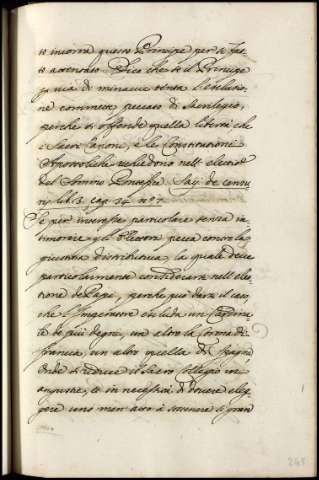 to incorra questo Principe per se fat
to attentato. Dico che se il Principe
p via di minaccie tenta l'esclusio,
ne commette peccato di sacrilegio,
perche si offende quella libertà che
i Sacri Canoni, e le Constitutioni
Apostoliche richiedono nell' elettione
del Sommo Pontefice. Say: de censu
ris lib. 3. cap. 34. nº 7.
Se poi interesse particolare senza
gl'Elettori pecca contro la
giustitia distributiva, la quale deve
particolarmente considerarsi nell' ele
tione de Papa, perche può darsi il caso,
che l'Imperatore escluda un Cardina
le de più degni, un altro la Corona di
francia, un altro quella di Spagna
onde si riduce il Sacro Collegio in
angustie, et in necessità di dovere eleg
gere uno men atto à sostenere si gran
245